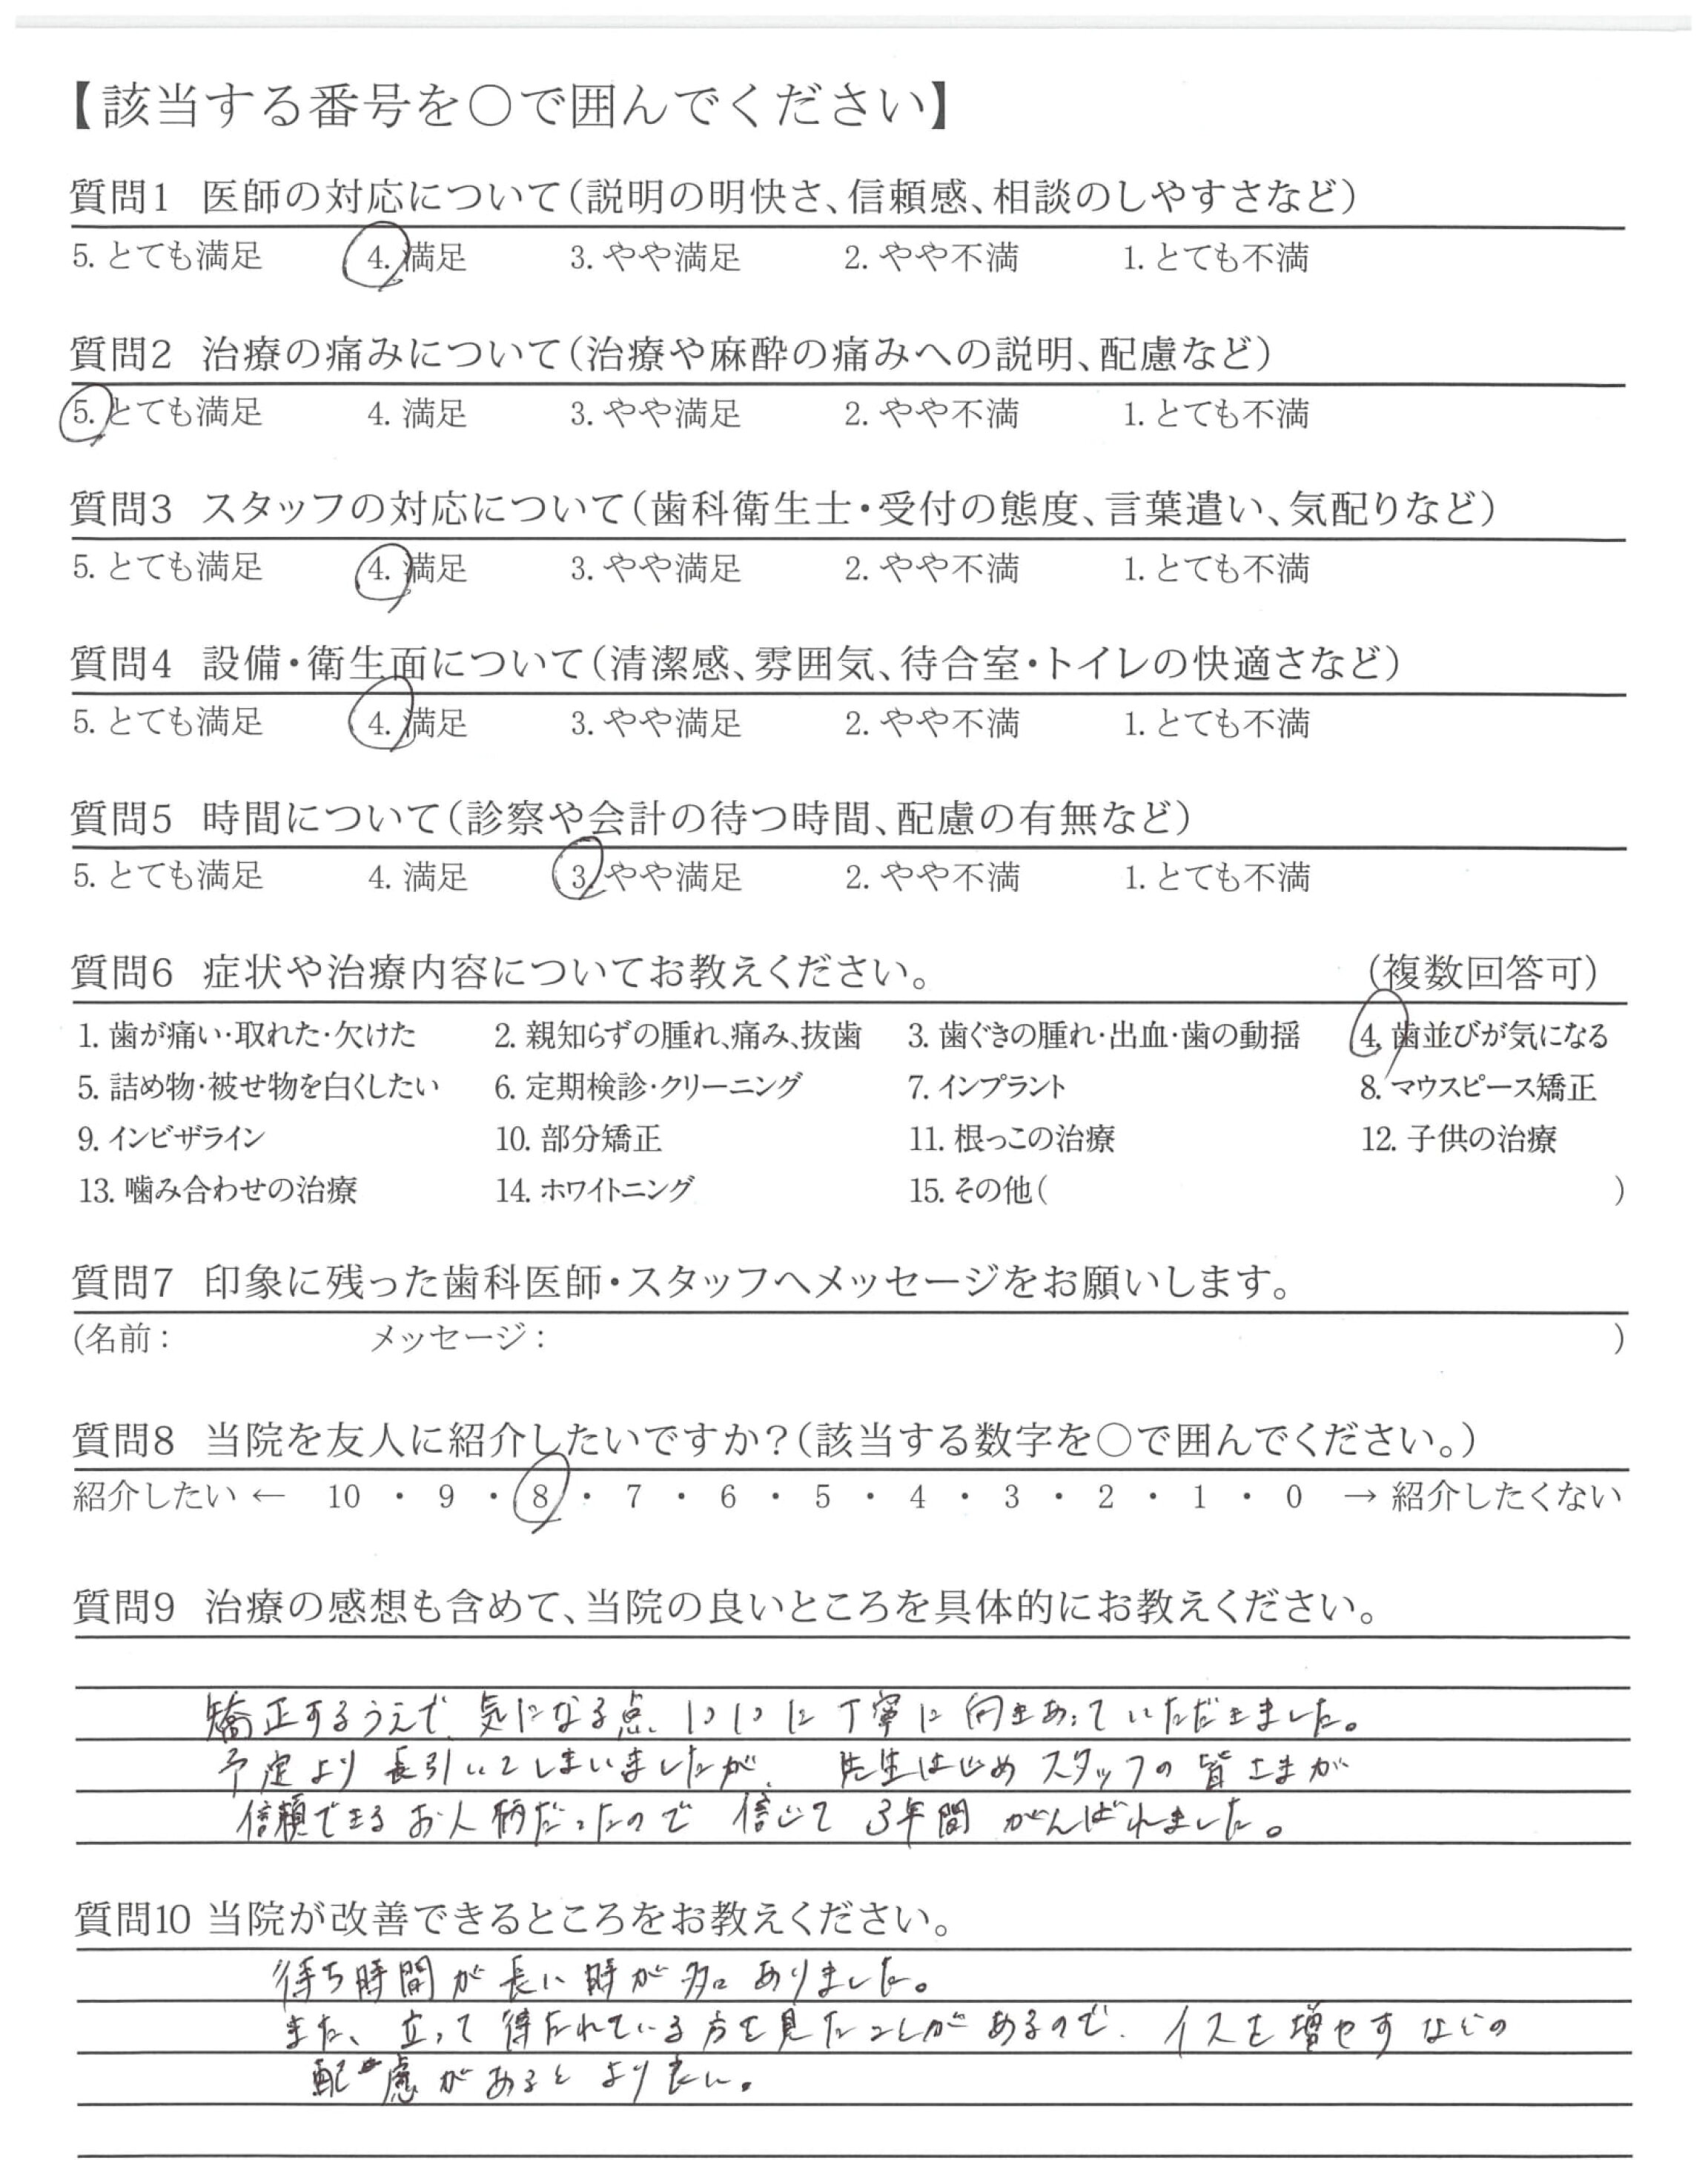 【該当する番号を○で囲んでください】
質問1 医師の対応について(説明の明快さ、信頼感、相談のしやすさなど)
5. とても満足 4. 満足 3. やや満足 2. やや不満 1. とても不満
質問2 治療の痛みについて(治療や麻酔の痛みへの説明、配慮など)
5. とても満足 4. 満足 3. やや満足 2. やや不満 1. とても不満
質問3 スタッフの対応について(歯科衛生士・受付の態度、言葉遣い、気配りなど)
5. とても満足 4. 満足 3. やや満足 2. やや不満 1. とても不満
質問4 設備・衛生面について(清潔感、雰囲気、待合室・トイレの快適さなど)
5. とても満足 4. 満足 3. やや満足 2. やや不満 1. とても不満
質問5 時間について(診察や会計の待つ時間、配慮の有無など)
5. とても満足 4. 満足 3. やや満足 2. やや不満 1. とても不満
質問6 症状や治療内容についてお教えください。 (複数回答可)
1. 歯が痛い・取れた・欠けた 2. 親知らずの腫れ、痛み、抜歯 3. 歯ぐきの腫れ・出血・歯の動揺 4. 歯並びが気になる
5. 詰め物・被せ物を白くしたい 6. 定期検診・クリーニング 7. インプラント 8. マウスピース矯正
9. インビザライン 10. 部分矯正 11. 根っこの治療 12. 子供の治療
13. 噛み合わせの治療 14. ホワイトニング 15. その他( )
質問7 印象に残った歯科医師・スタッフへメッセージをお願いします。
(名前: メッセージ: )
質問8 当院を友人に紹介したいですか?(該当する数字を○で囲んでください。)
紹介したい ← 10 ・ 9 ・ 8 ・ 7 ・ 6 ・ 5 ・ 4 ・ 3 ・ 2 ・ 1 ・ 0 → 紹介したくない
質問9 治療の感想も含めて、当院の良いところを具体的にお教えください。
矯正するうえで、気になる点 1つ1つに丁寧に向きあっていただきました。
予定より長引いてしまいましたが、先生はじめスタッフの皆さまが
信頼できるお人柄だったので 信じて 3年間 がんばれました。
質問10 当院が改善できるところをお教えください。
待ち時間が長い時が多々ありました。
また、立って待たれている方を見たことがあるので、イスを増やすなどの
配慮があるとより良い。